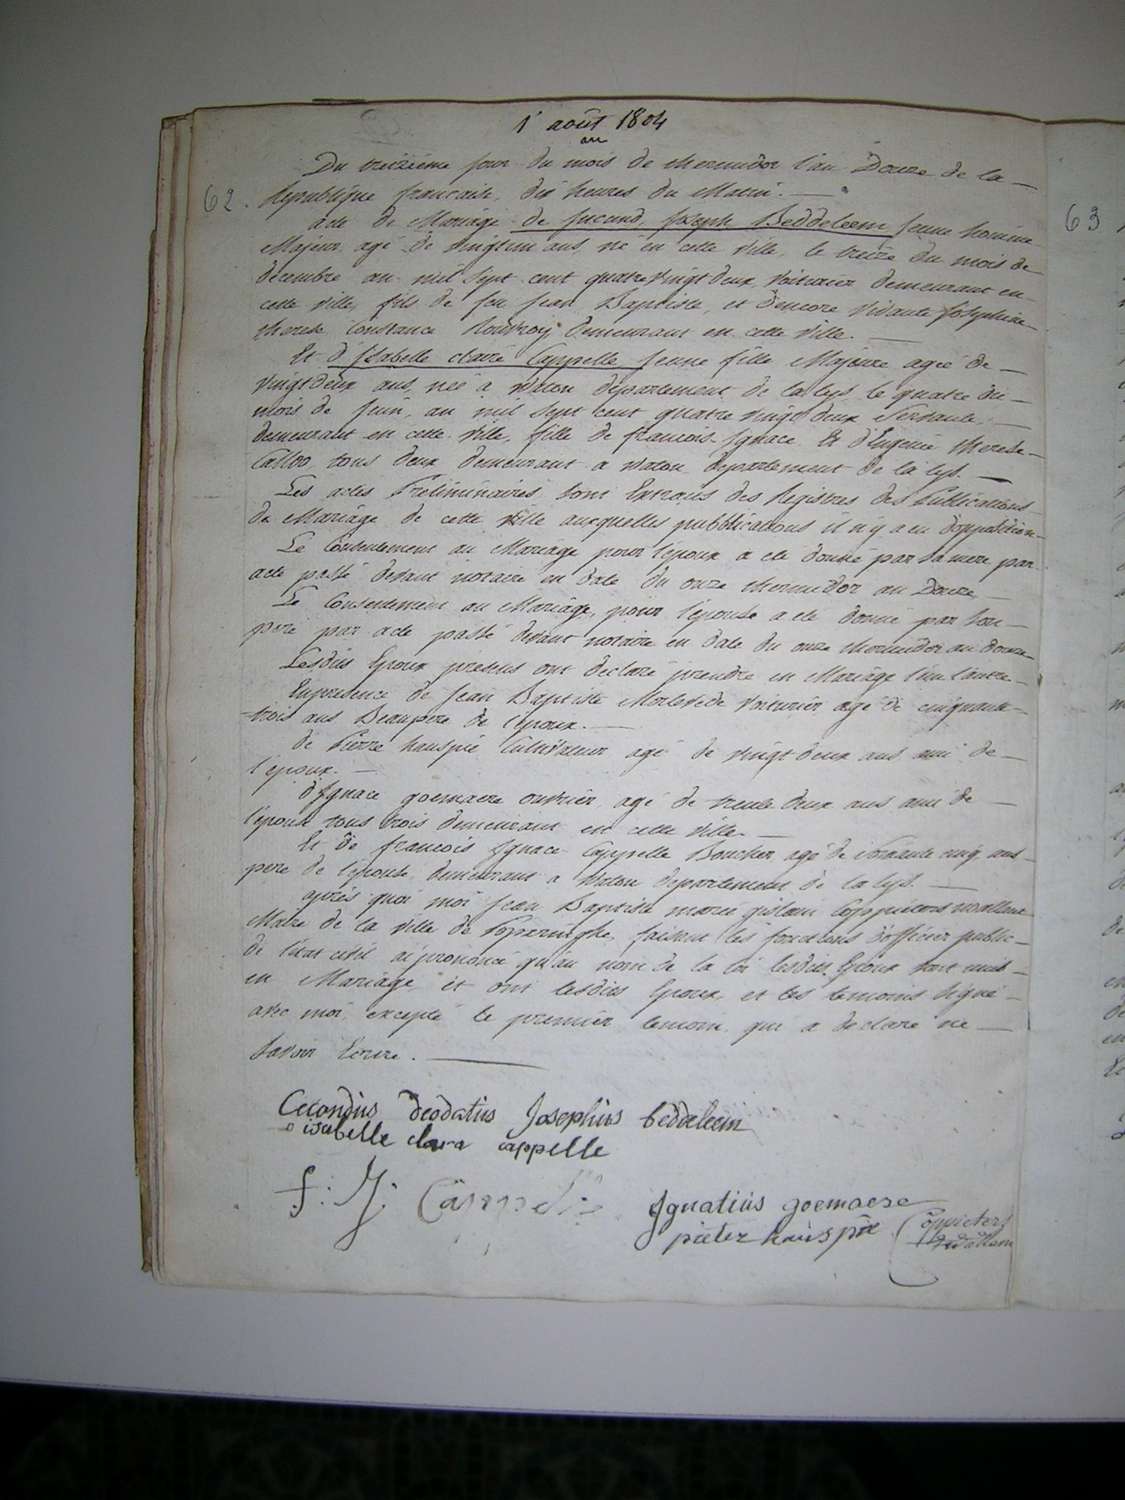 1 août 1804
an
62. Du treizieme jour du mois de thermidor l'an Douze de la
Republique francaise, dix heures du Matin.
acte de Mariage de Secund Joseph Beddeleem jeune homme
Majeur agé de vingt un ans, né en cette ville, le treize du mois de
decembre an mil sept cent quatre vingt deux, voiturier demeurant en
cette ville fils de feu Jean Baptiste, et d'encore vivante Josephine
therese Constance demeurant en cette ville.
Et d'Isabelle claire Cappelle jeune fille Majeure ageé de
vingt deux ans, neé a Watou departement de la lys, le quatre du
mois de juin, an mil sept cent quatre vingt deux servante,
demeurant en cette ville, fille de francois Ignace Et d'Eugenie therese
Calloo, tous deux demeurant a Watou departement de la lys.
Les actes Préliminaires sont Extraits des Registres des Publications
de Mariage de cette ville auxquelles publications il n'y a eu d'opposition
Le Consentement au Mariage pour l'epoux a eté donné par sa mere par
acte passé devant notaire en date du onze thermidor an Douze
Le Consentement au Mariage, pour l'epouse a eté donné par son
pere par acte passé devant notaire en date du onze thermidor an douze
Lesdits Epoux presens ont declaré prendre en Mariage l'un l'autre
En presence de Jean Baptiste voiturier agé de cinquante
trois ans Beaupere de l'epoux.
de Pierre hauspie Cultivateur agé de vingt deux ans ami de
l'epoux.
d'Ignace goemaere ouvrier agé de trente deux ans ami de
l'epouse tous trois demeurant en cette ville.
Et de francois Ignace Cappelle Boucher agé de cinq ans
pere de l'epouse, demeurant a Watou departement de la lys.
après quoi moi Jean Baptiste marie gislain Coppieters wallant
Maire de la ville de Poperinghe, faisant les fonctions d'officier public
de l'etat civil ai prononcé qu'au nom de la loi lesdits Epoux sont unis
en Mariage et ont lesdits Epoux, et les temoins signé
avec moi, excepté le premier temoin qui a declaré ne
savoir Ecrire.
Cecondus deodatus Josephus beddeleem
isabelle clara cappelle
f: J: Cappelle Ignatius goemaere
pieter hauspie Coppieters
Wallant
63